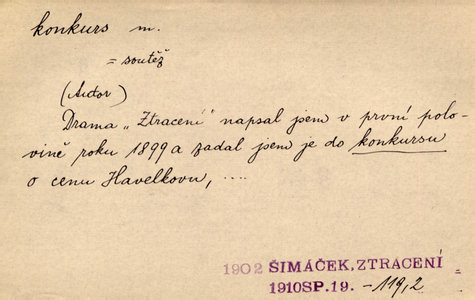 konkurs m.
= soutěž
(Autor)
Drama „Ztracení" napsal jsem v první polo-
vině roku 1899 a zadal jsem je do konkursu
o cenu Havelkovu, ....
1902 ŠIMÁČEK, ZTRACENÍ =
1910SP.19. – 119,2